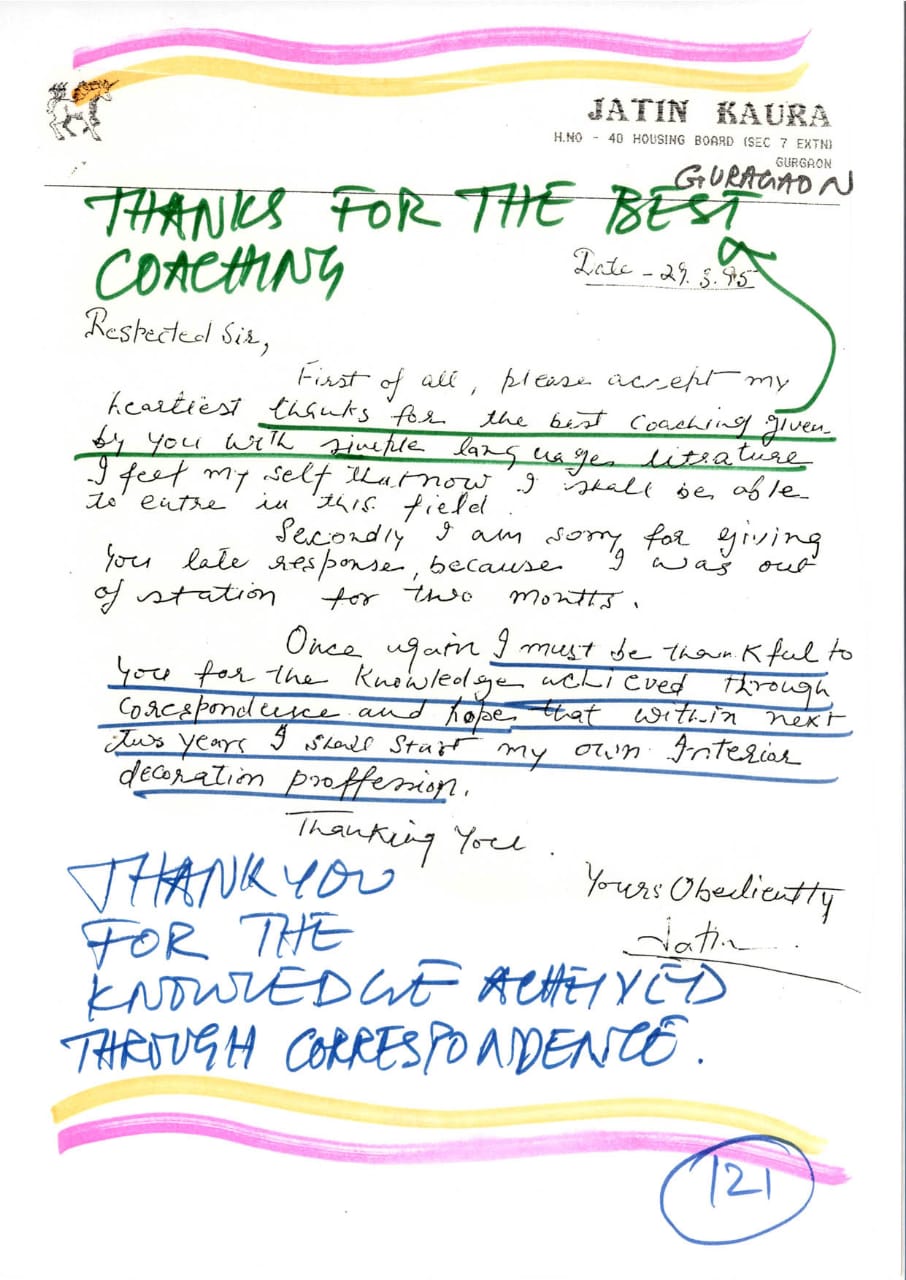 JATIN KAURA
H.NO - 40 HOUSING BOARD (SEC 7 EXTN)
GURGAON
GURAGAON
THANKS FOR THE BEST
COACHING
Date - 29.3.95
Respected Sir,
First of all, please accept my
heartiest thanks for the best coaching given
by you with simple languages litrature
I feel my self that now I shall be able
to entre in this field.
Secondly I am sorry for giving
you late response, because I was out
of station for two months.
Once again I must be thankful to
you for the knowledge achieved through
corespondence and hope that within next
two years I shall start my own Interior
decoration proffession.
Thanking You.
Yours Obediently
Jatin
THANK YOU
FOR THE
KNOWLEDGE ACHEIVED
THROUGH CORRESPONDENCE.
121